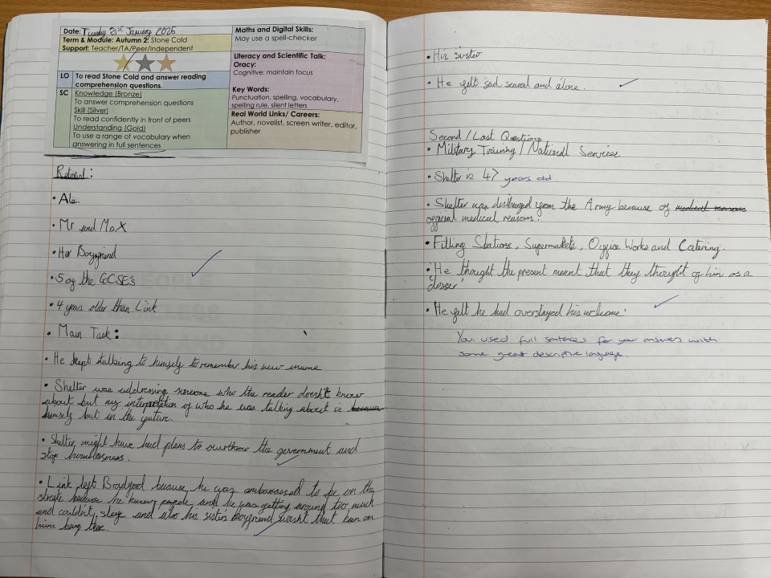 Date: Tuesday 21st January 2025
Term & Module: Autumn 2: Stone Cold
Support: Teacher/TA/Peer/Independent
LO To read Stone Cold and answer reading
comprehension questions
SC Knowledge (Bronze)
To answer comprehension questions
Skill (Silver)
To read confidently in front of peers
Understanding (Gold)
To use a range of vocabulary when
answering in full sentences
Maths and Digital Skills:
May use a spell-checker
Literacy and Scientific Talk:
Oracy:
Cognitive: maintain focus
Key Words:
Punctuation, spelling, vocabulary,
spelling rule, silent letters
Real World Links/ Careers:
Author, novelist, screen writer, editor,
publisher
• Mr and Max
• Her Boyfriend
• 5 of the GCSE's
• 4 years older than Link
• Main Task:
• He kept talking to himself to remember his new name
• Shelter was addressing someone who the reader doesn't know
about but my interpretation of who he was talking about is because
himself but in the future.
• Shelter, might have had plans to overthrow the government and
stop homelessness.
• Link left Bradford because he was embarrassed to be on the
streets because he knew people and he was getting around too much
and couldn't sleep and also his sisters boyfriend wasn't that keen on
him being there.
• His sister
• He felt sad scared and alone.
Second/Last Questions
• Military Training / National Services
• Shelter is 47 years old
• Shelter was discharged from the Army because of medical reasons
official medical reasons.
• Filling Stations, Supermarkets, Office Works and Catering.
• He thought the present meant that they thought of him as a
'dosser'
• He felt he had overstayed his welcome.
You used full sentences for your answers with
some great descriptive language.